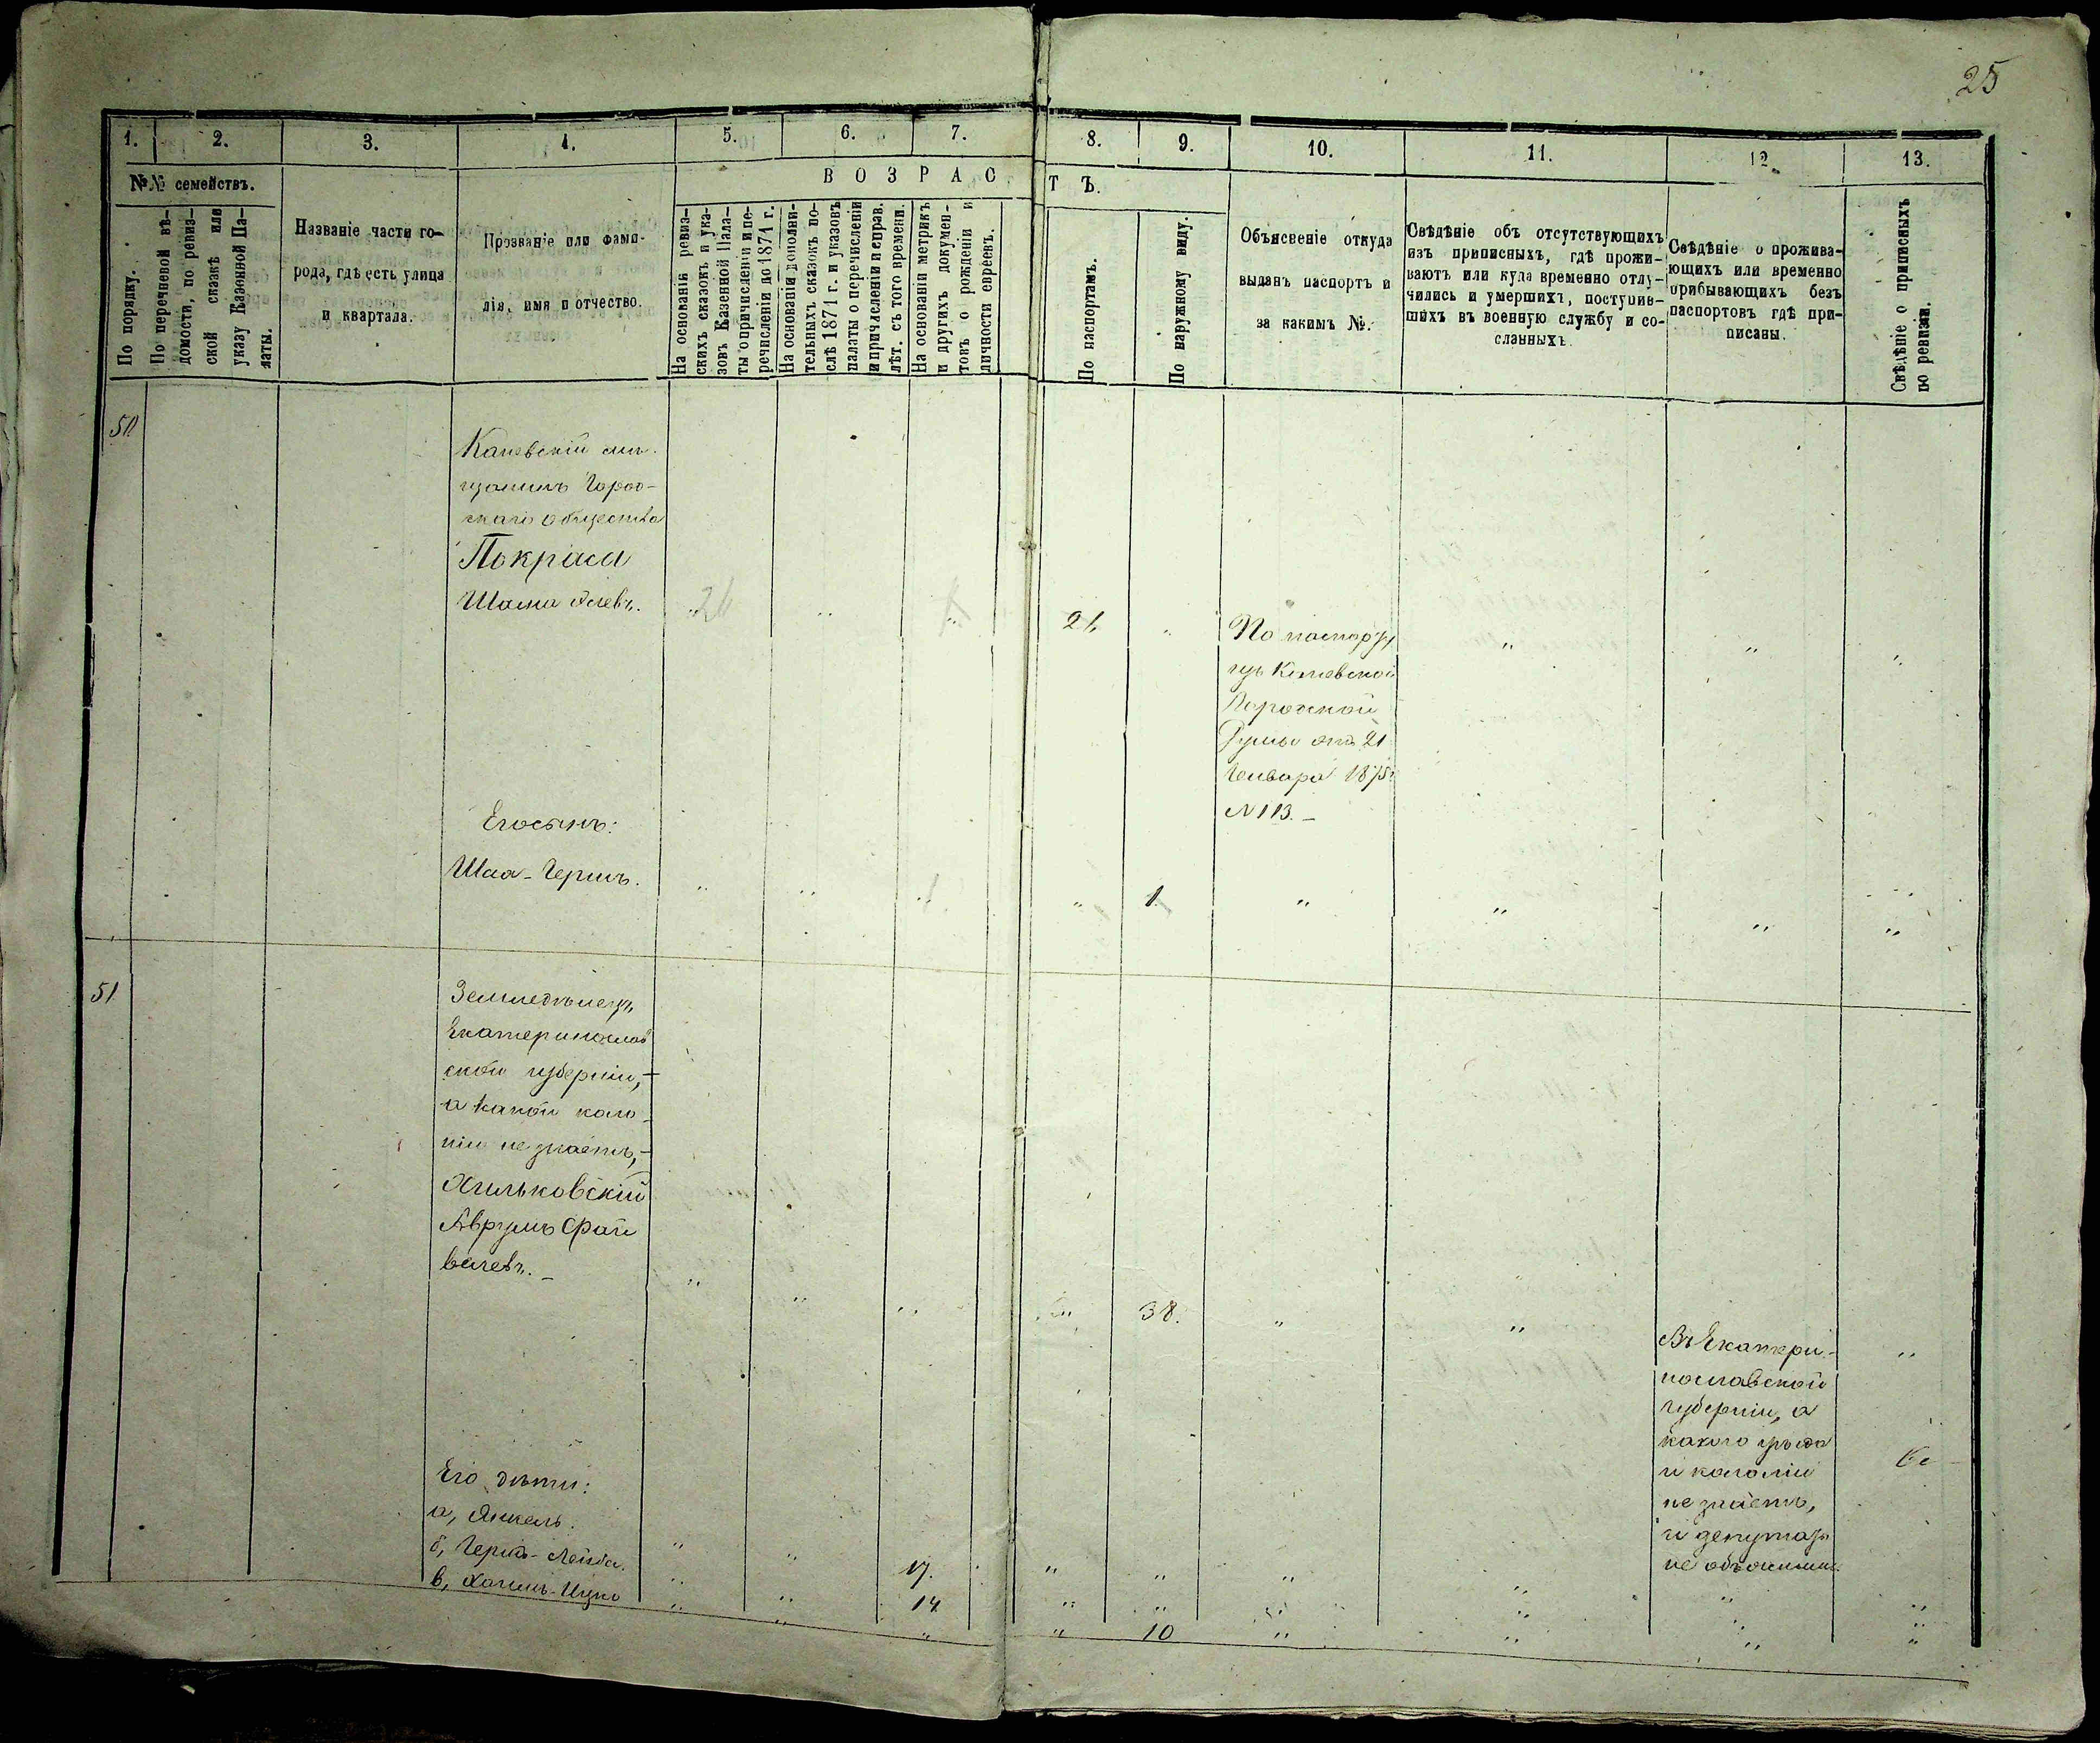 25
1.
2.
3.
4.
5.
6.
7.
8.
9.
10.
11.
12.
13.
№№ семействъ.
По порядку.
По перечневой вѣ-
домости, по ревиз-
ской сказкѣ или
указу Казенной Па-
латы.
Названіе части го-
рода, гдѣ есть улица
и квартала.
Прозваніе или фами-
лія, имя и отчество.
ВОЗРАС
ТЪ.
На основаніи ревиз-
скихъ сказокъ и ука-
зовъ Казенной Пала-
ты о причисленіи и пе-
речисленіи до 1871 г.
На основаніи дополни-
тельныхъ сказокъ по-
слѣ 1871 г. и указовъ
палаты о перечисленіи
и причисленіи и справ.
лѣт. съ того времени.
На основаніи метрикъ
и другихъ докумен-
товъ о рожденіи и
личности евреевъ.
По паспортамъ.
По наружному виду.
Объясненіе откуда
выданъ паспортъ и
за какимъ №.
Свѣдѣніе объ отсутствующихъ
изъ приписныхъ, гдѣ прожи-
ваютъ или куда временно отлу-
чились и умершихъ, поступив-
шихъ въ военную службу и со-
сланныхъ.
Свѣдѣніе о прожива-
ющихъ или временно
прибывающихъ безъ
паспортовъ гдѣ при-
писаны.
Свѣдѣніе о приписныхъ
по ревизіи.
50
Каневскій мѣ-
щанинъ
общества
Покраса
26 " " 21 " " " "
По паспорту
изъ Каневской
Городской
Думы отъ 21
Генваря 1875 г
N 113. –
Его сынъ:
Шая-Гершъ. " " " 1. " " " "
51
Земледѣлецъ
Екатеринослав
ской губерніи, –
а какой коло-
ніи не знаетъ, –
Хильковскій
Аврумъ Фай
велевъ. – " " " " 38. " " "
Въ Екатери-
нославской
губерніи, а
какого уѣзда
и колоніи
не знаетъ,
и депутатъ
не объяснилъ.
Его дѣти:
а, Янкель. " " 17. " " " " " "
б, Гершъ-Лейба. " " 14 " " " " " "
в, Хаимъ-Ицко " " " " 10 " " " "